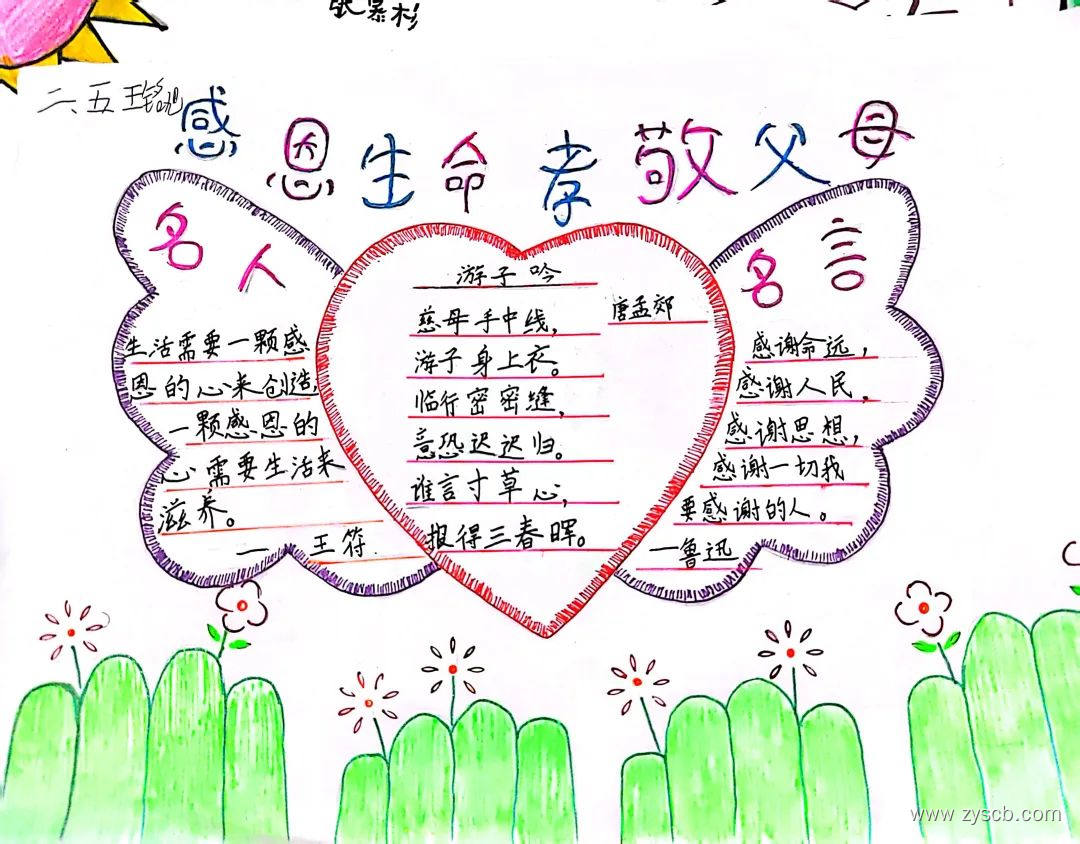 张慕杉
二、五 王铭旭
感恩生命孝敬父母
名人
生活需要一颗感
恩的心来创造,
一颗感恩的
心需要生活来
滋养。
— 王符.
游子吟
唐孟郊
慈母手中线,
游子身上衣。
临行密密缝,
意恐迟迟归。
谁言寸草心,
报得三春晖。
名言
感谢命远,
感谢人民,
感谢思想,
感谢一切我
要感谢的人。
—鲁迅
www.zyscb.com